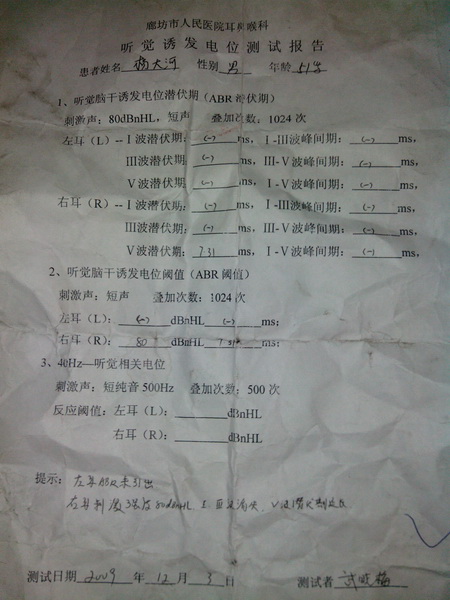 廊坊市人民医院耳鼻喉科
听觉诱发电位测试报告
患者姓名 杨大河 性别 男 年龄 51岁
1、听觉脑干诱发电位潜伏期（ABR 潜伏期）
刺激声：80dBnHL，短声 叠加次数：1024 次
左耳（L）--I 波潜伏期： (-) ms， I -III波峰间期： (-) ms，
III波潜伏期： (-) ms， III-V 波峰间期： (-) ms，
V 波潜伏期： (-) ms， I - V 波峰间期： (-) ms，
右耳（R）--I 波潜伏期： (-) ms， I -III波峰间期： (-) ms，
III波潜伏期： (-) ms， III-V 波峰间期： (-) ms，
V 波潜伏期： 7.31 ms， I - V 波峰间期： (-) ms，
2、听觉脑干诱发电位阈值（ABR 阈值）
刺激声：短声 叠加次数：1024 次
左耳（L）： (-) dBnHL (-) ms；
右耳（R）： 80 dBnHL 7.31 ms；
3、40Hz—听觉相关电位
刺激声：短纯音 500Hz 叠加次数：500 次
反应阈值：左耳（L）： dBnHL
右耳（R）： dBnHL
提示： 左耳 未引出
右耳刺激强度80dBnHL I III波消失，V波潜伏期延长
测试日期 2009 年 12 月 3 日 测试者